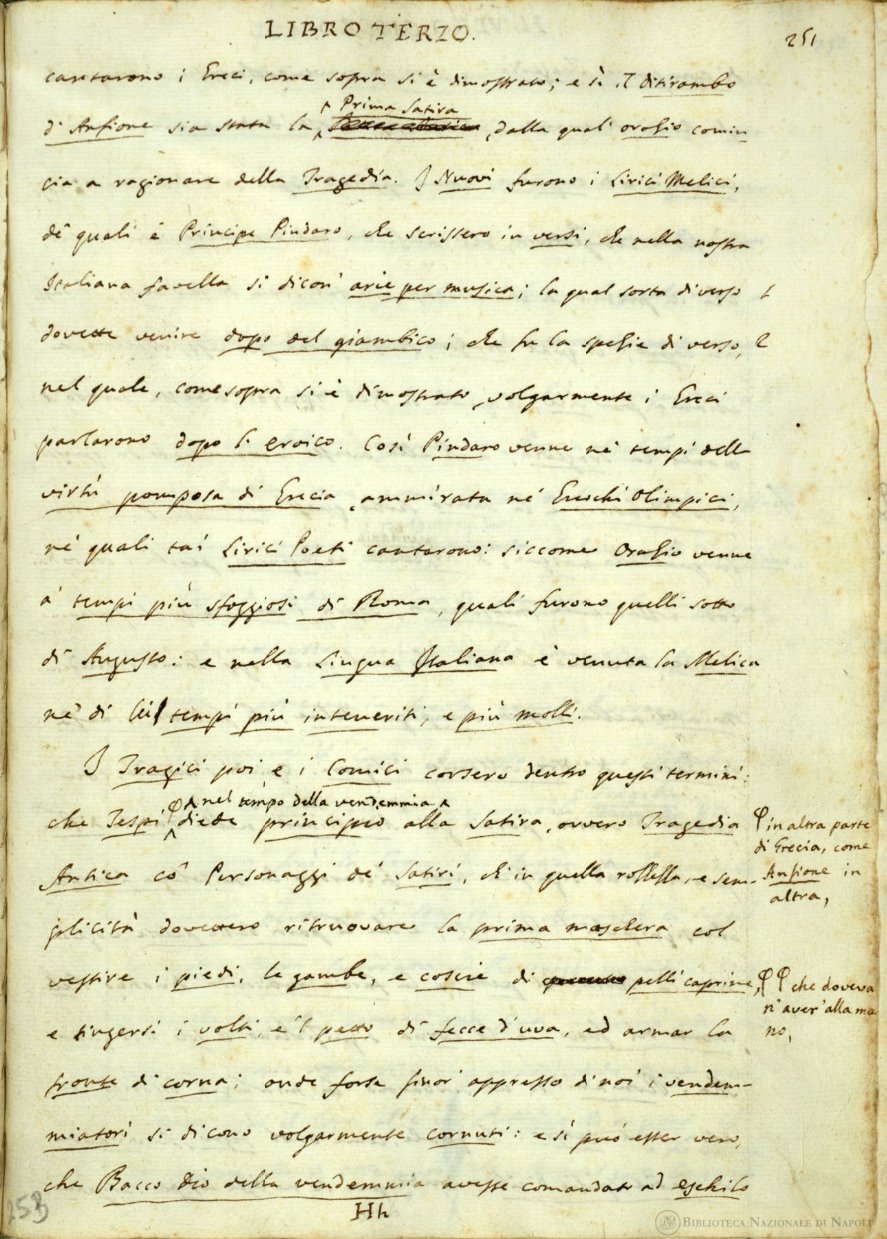 LIBRO TERZO.
251
cantarono i Greci, come sopra si è dimostrato; e sì il Ditirambo
Prima Satira
d'Anfione sia stata la dalla qual' Orazio comin-
cia a ragionare della Tragedia. I Nuovi furono i Lirici Melici,
de' quali è Principe Pindaro, che scrissero in versi, che nella nostra
Italiana favella si dicon' arie per musica; la qual sorta di verso 1
dovette venire dopo del giambico; che fu la spezie di verso, 2
nel quale, come sopra si è dimostrato, volgarmente i Greci
parlarono dopo l'eroico. Così Pindaro venne ne' tempi della
virtù pomposa di Grecia, ammirata ne' Giuochi Olimpici,
ne' quali tai Lirici Poeti cantarono: siccome Orazio venne
a' tempi più sfoggiosi di Roma, quali furono quelli sotto
di Augusto: e nella Lingua Italiana è venuta la Melica
ne' di lei tempi più inteneriti, e più molli.
I Tragici poi, e i Comici corsero dentro questi termini:
nel tempo della vendemmia
che Tespi diede principio alla Satira, ovvero Tragedia
φ in altra parte
di Grecia, come
Anfione in
altra,
Antica co' Personaggi de' Satiri, ch'in quella rozzezza, e sem-
plicità dovettero ritruovare la prima maschera col
vestire i piedi, le gambe, e coscie di pelli caprine,
φφ che dovevan
n' aver' alla ma
no,
e tingersi i volti, e 'l petto di fecce d'uva, ed armar la
fronte di corna; onde forse finor' appresso di noi i vendem-
miatori si dicono volgarmente cornuti: e sì può esser vero,
che Bacco Dio della vendemmia avesse comandato ad Eschilo
Hh
253
BIBLIOTECA NAZIONALE DI NAPOLI